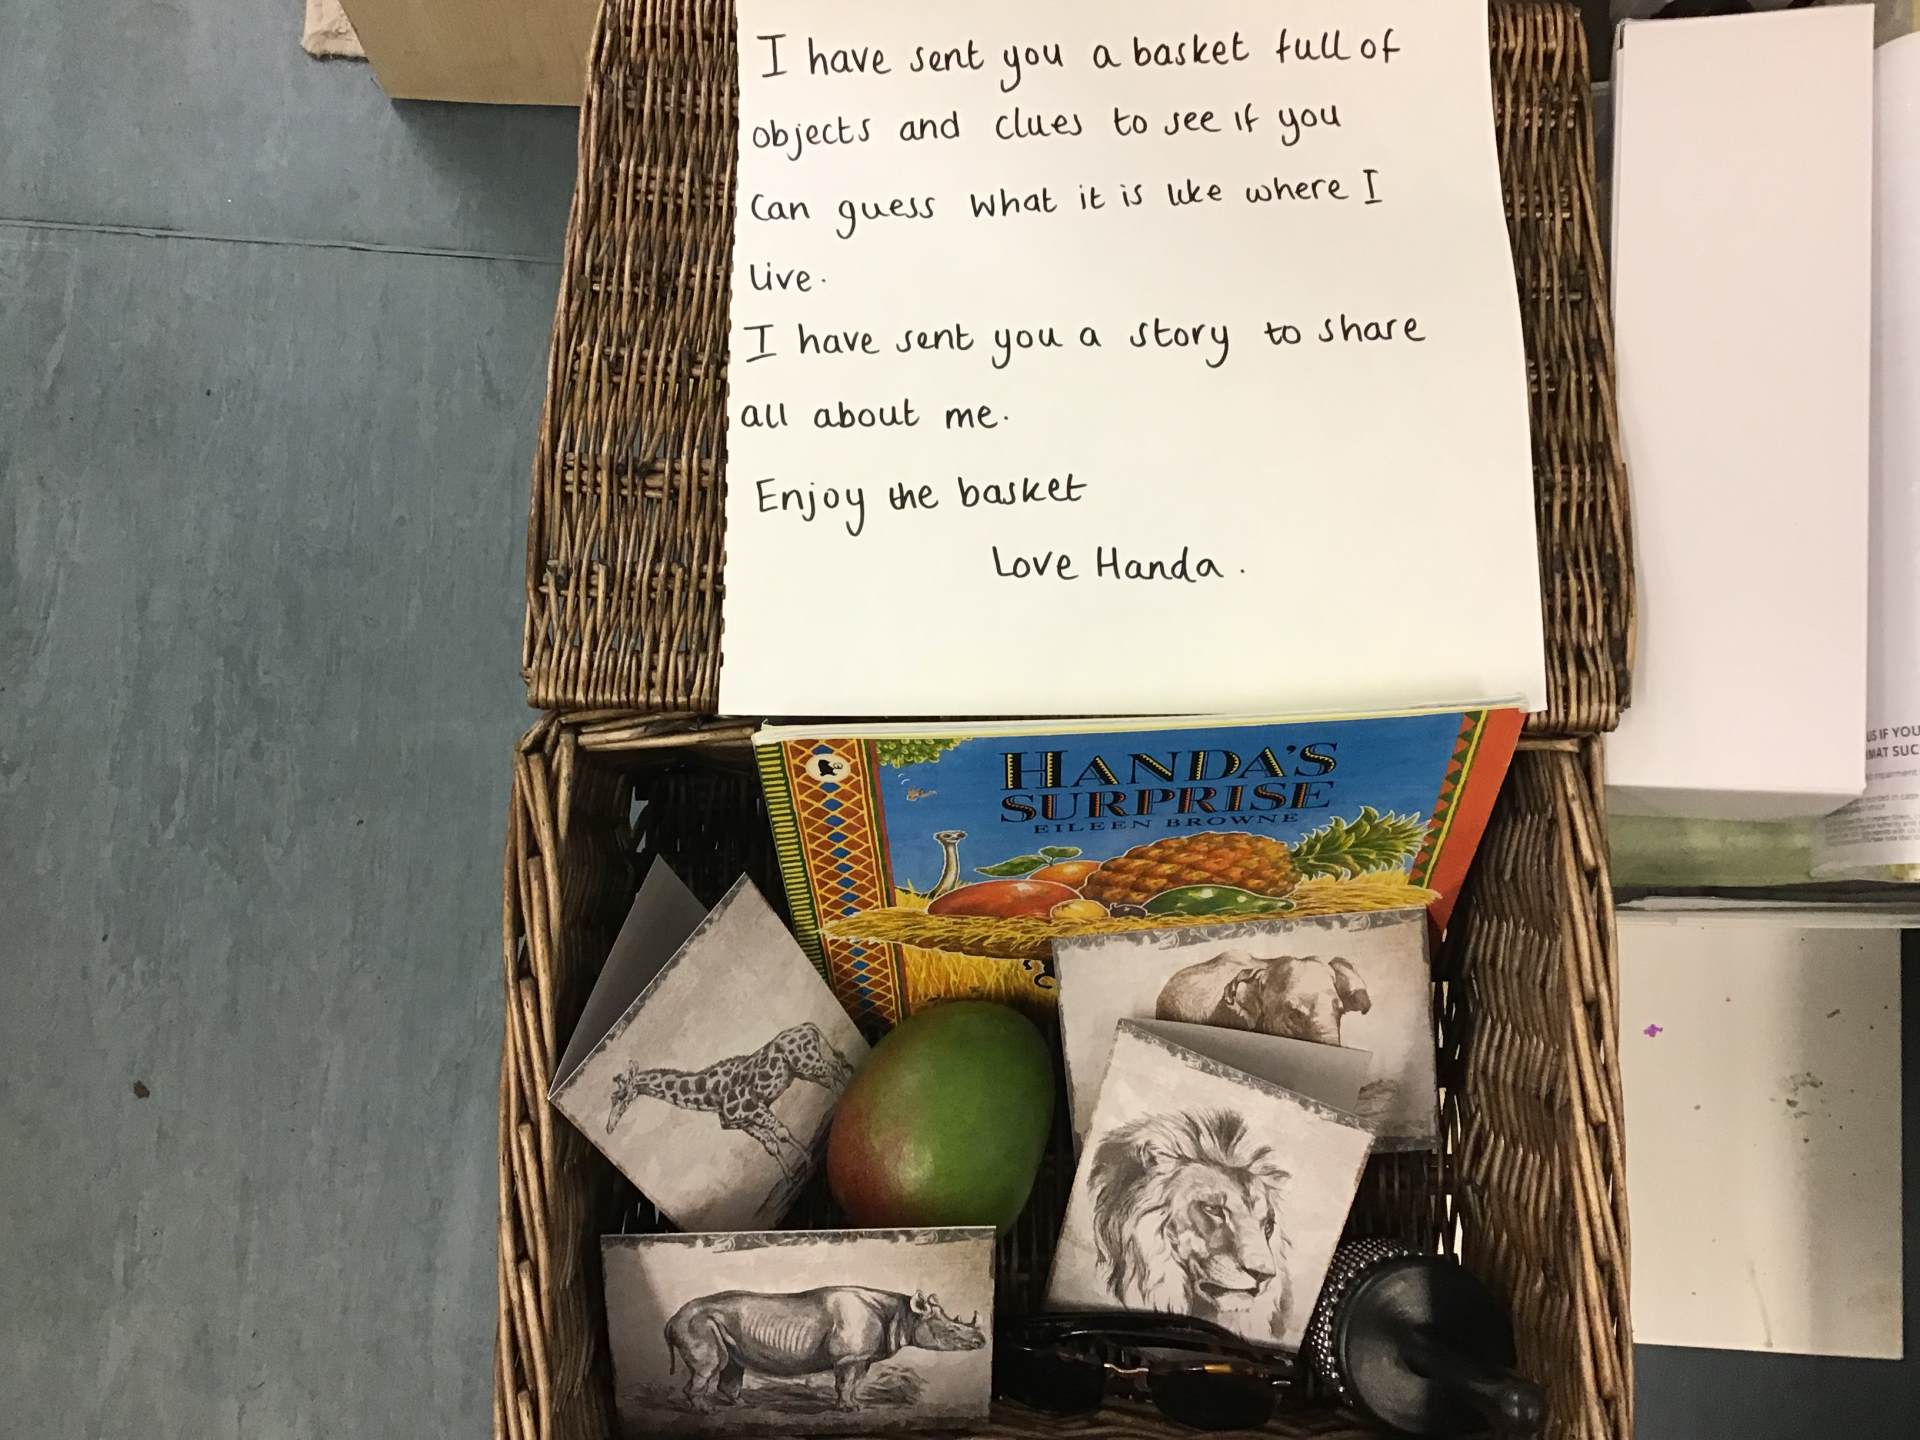 I have sent you a basket full of
objects and clues to see if you
can guess what it is like where I
live.
I have sent you a story to share
all about me.
Enjoy the basket
Love Handa.
HANDA'S
SURPRISE
EILEEN BROWNE
US IF YOU
MAT SUC